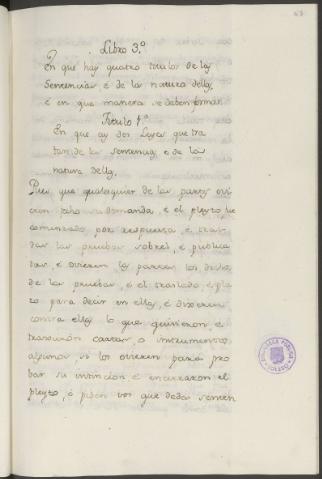 Libro 3.º
En que hay quatro titulos de las
Sentencias, é de la natura dellas,
é en que manera se deben formar
Titulo 1.º
En que ay dos Leyes que tra
tan de las sentencias, é de la
natura dellas.
Pues que qualesquier de las partes ovi
eren fecho su demanda, é el pleyto fue
comenzado por respuesta, é
das las pruebas sobrello, é publica
das, é ovieren las partes los dichos
de las pruebas, é el traslado, é pla
zo para decir en ellas, é dixeren
contra ellas lo que quisieron, é
cartas, o instrumentos
algunos, si los ovieren para pro
bar su intincion, é encerraron el
pleyto, é piden vos que dedes senten
BIBLIOTECA PUBLICA
TOLEDO